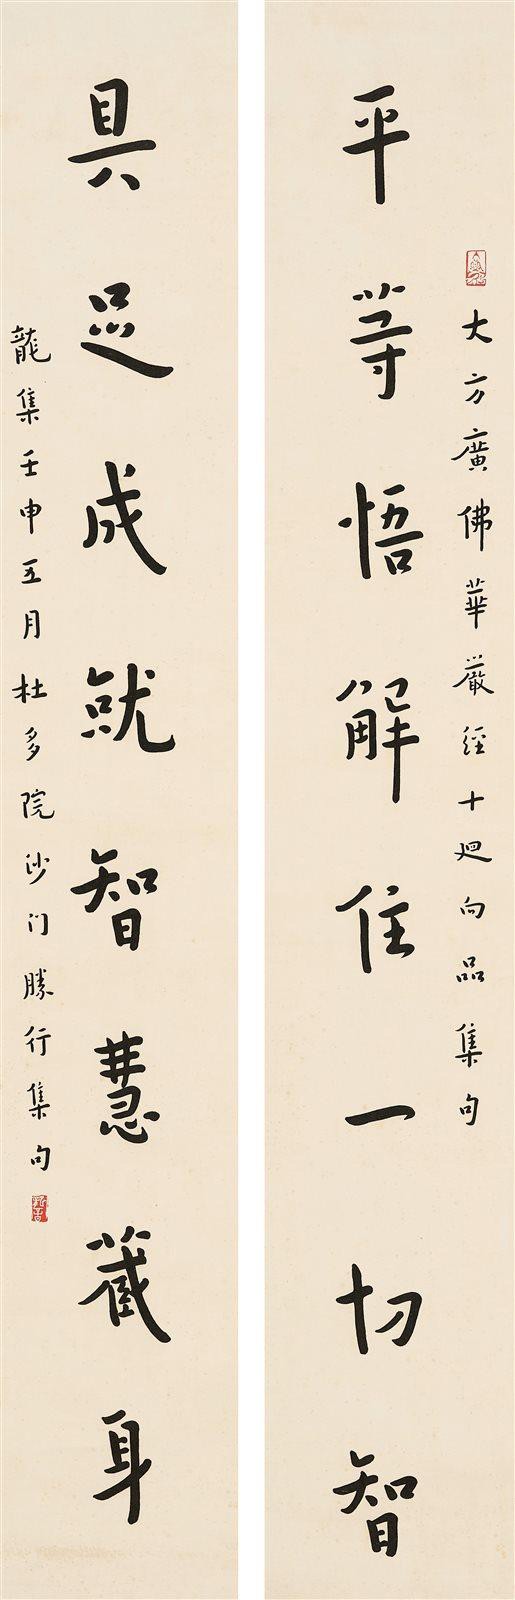 大方廣佛華嚴經十迴向品集句
平等悟解住一切智
具足成就智慧藏身
龍集壬申五月杜多院沙门勝行集句